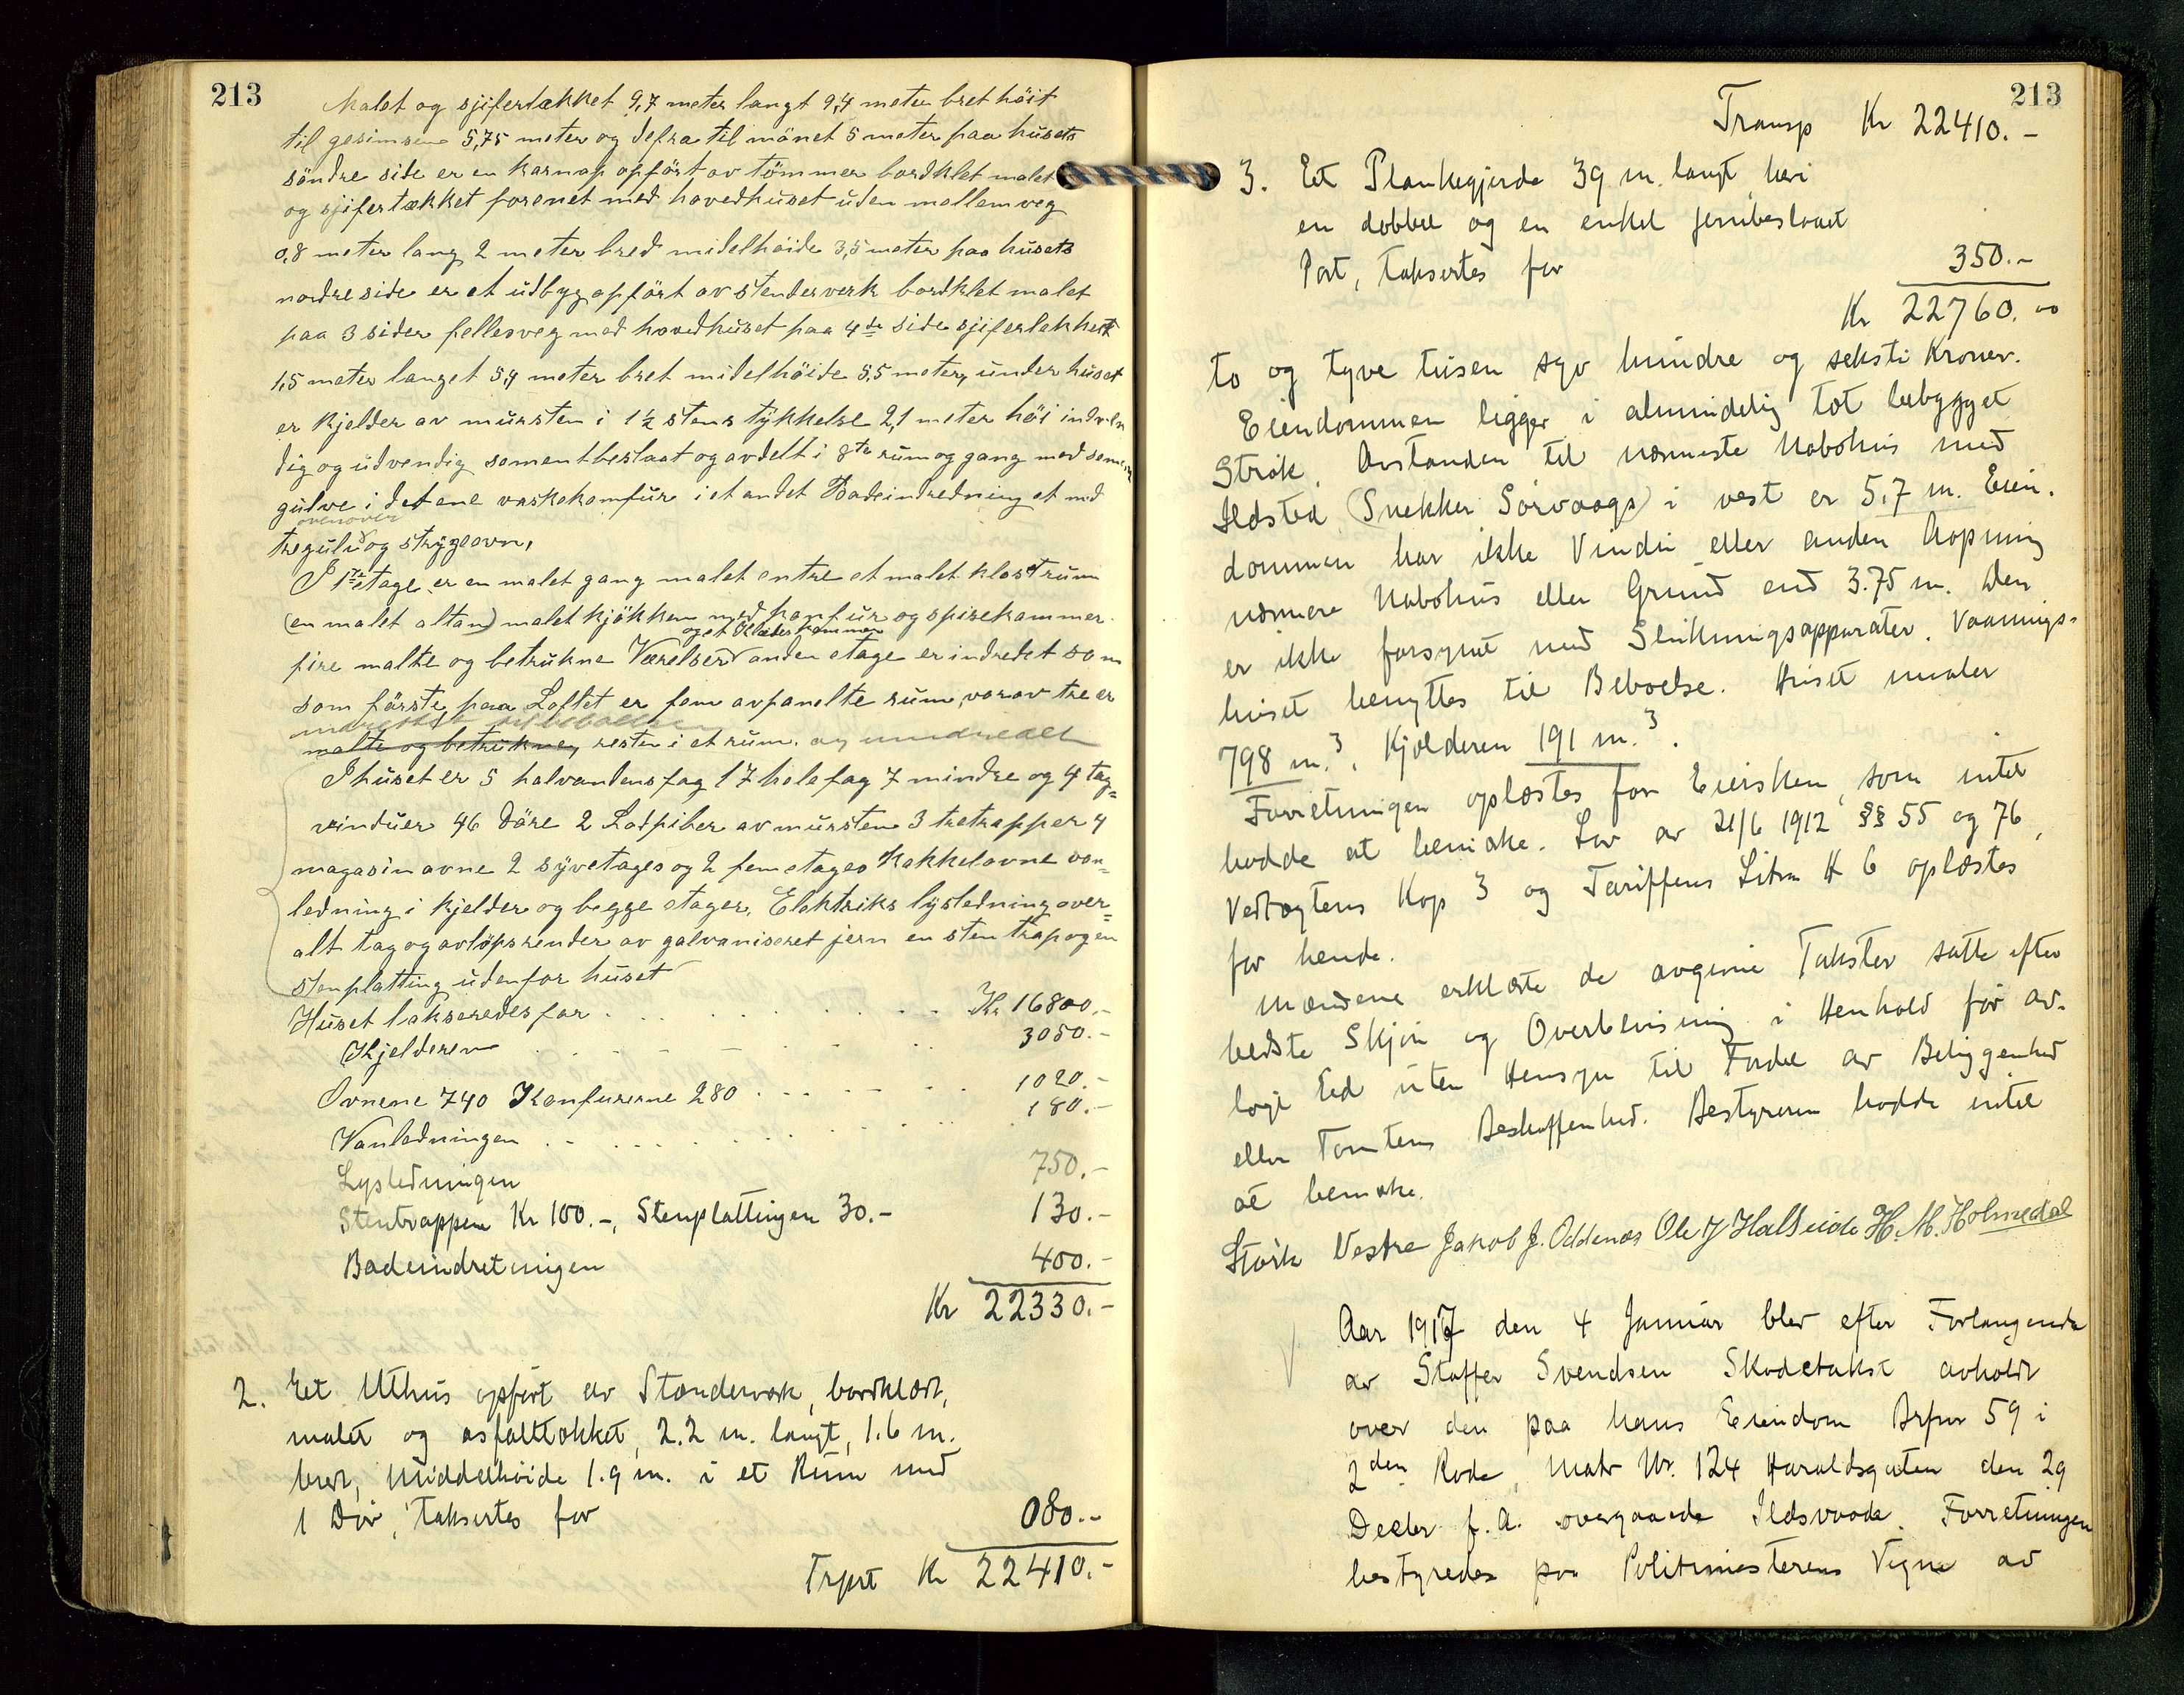 213
Malet og sjifertækket 9,7 meter langt 9,4 meter bret höit
til gesimsen 5,75 meter og defra til mönet 5 meter paa husets
söndre side er en karnap opfört av tömmer bordklet malet
og sjifertækket forenet med hovedhuset uden mellemveg
0,8 meter lang 2 meter bred midelhöide 3,5 meter paa husets
nordre side er et udbyg opfört av stenderverk bordklet malet
paa 3 sider fellesveg med hovedhuset paa 4de side sjifertekket
1,5 meter langet 5,4 meter bret midelhöide 5,5 meter, under huset
er kjelder av mursten i 1½ stens tykkelse 2,1 meter höi indven
dig og udvendig sementbeslaat og avdelt i 8te rum og gang med sement
gulve i det ene vaskekomfur i et andet Badeindredning et med
ovenover
tregulv og strygeovn,
I 1ste etage er en malet gang malet entre et malet klosetrum
(en malet altan) malet kjökken med komfur og spisekammer
og et Klæderkammer
fire malte og betrukne Værelser anden etage er indredet som
som förste, paa Loftet er fem avpanelte rum, vorav tre er
indredet til beboelse
malte og betrukne, resten i et rum. og uindredet
I huset er 5 halvandensfag 17 helefag 7 mindre og 4 tag=
vinduer 46 Döre 2 Lodpiber av mursten 3 tretrapper 4
magasinavne 2 syvetages og 2 femetages Kakkelovne van=
ledning i kjelder og begge etager, Elektriks lysledning over=
alt tag og avlöpsrender av galvaniseret jern en sten trap og en
stenplatting udenfor huset
Huset takseredes for . . . . . Kr 16800.-
Kjelderen . . . . . 3050.-
Ovnene 740 Komfurerne 280 . . . . . 1020.-
Vanledningen . . . . . 180.-
Lysledningen 750.-
Stentrappen Kr 100.-, Stenplattingen 30.- 130.-
Badeindretningen 400.-
Kr 22330.-
2. Et Uthus opført av Stænderværk, bordklædt,
malet og asfalttækket, 2.2 m. langt, 1.6 m.
bredt, Middelhøide 1.9 m. i et Rum med
1 Dør, taksertes for 080.-
Trprt Kr 22410.-
213
Transp Kr 22410.-
3. Et Plankegjerde 39 m. langt, heri
en dobbel og en enkel jernbeslaaet
Port, taksertes for 350.-
Kr 22760.00
to og tyve tusen syv hundre og seksti Kroner.
Eiendommen ligger i almindelig tæt bebygget
Strøk. Avstanden til nærmeste Nabohus med
Ildsted (Snekker Sørvaags) i vest er 5.7 m. Eien-
dommen har ikke Vindu eller anden Aapning
nærmere Nabohus eller Grund end 3.75 m. Den
er ikke forsynet med Slukningsapparater. Vaanings-
huset benyttes til Beboelse. Huset maaler
798 m.³, Kjælderen 191 m.³.
Forretningen oplæstes for Eiersken, som intet
hadde at bemærke. Lov av 21/6 1912 §§ 55 og 76,
Vedtægtens Kap 3 og Tariffens Litra H 6 oplæstes
for hende.
Mændene erklærte de avgivne Takster satte efter
bedste Skjøn og Overbevisning i Henhold før av-
lagt Ed uten Hensyn til Fordel av Beliggenhed
eller Tomtens Beskaffenhed. Bestyreren hadde intet
at bemærke.
Størk Vestre Jakob J. Oddenæs Ole J Halseide H. M. Holmedal
Aar 1917 den 4 Januar blev efter Forlangende
av Staffer Svendsen Skadetakst avholdt
over den paa hans Eiendom Brfnr 59 i
2den Rode, Matr Nr. 124 Haraldsgaten den 29
Decbr f.A. overgaaede Ildsvaade. Forretningen
bestyredes paa Politimesterens Vegne av